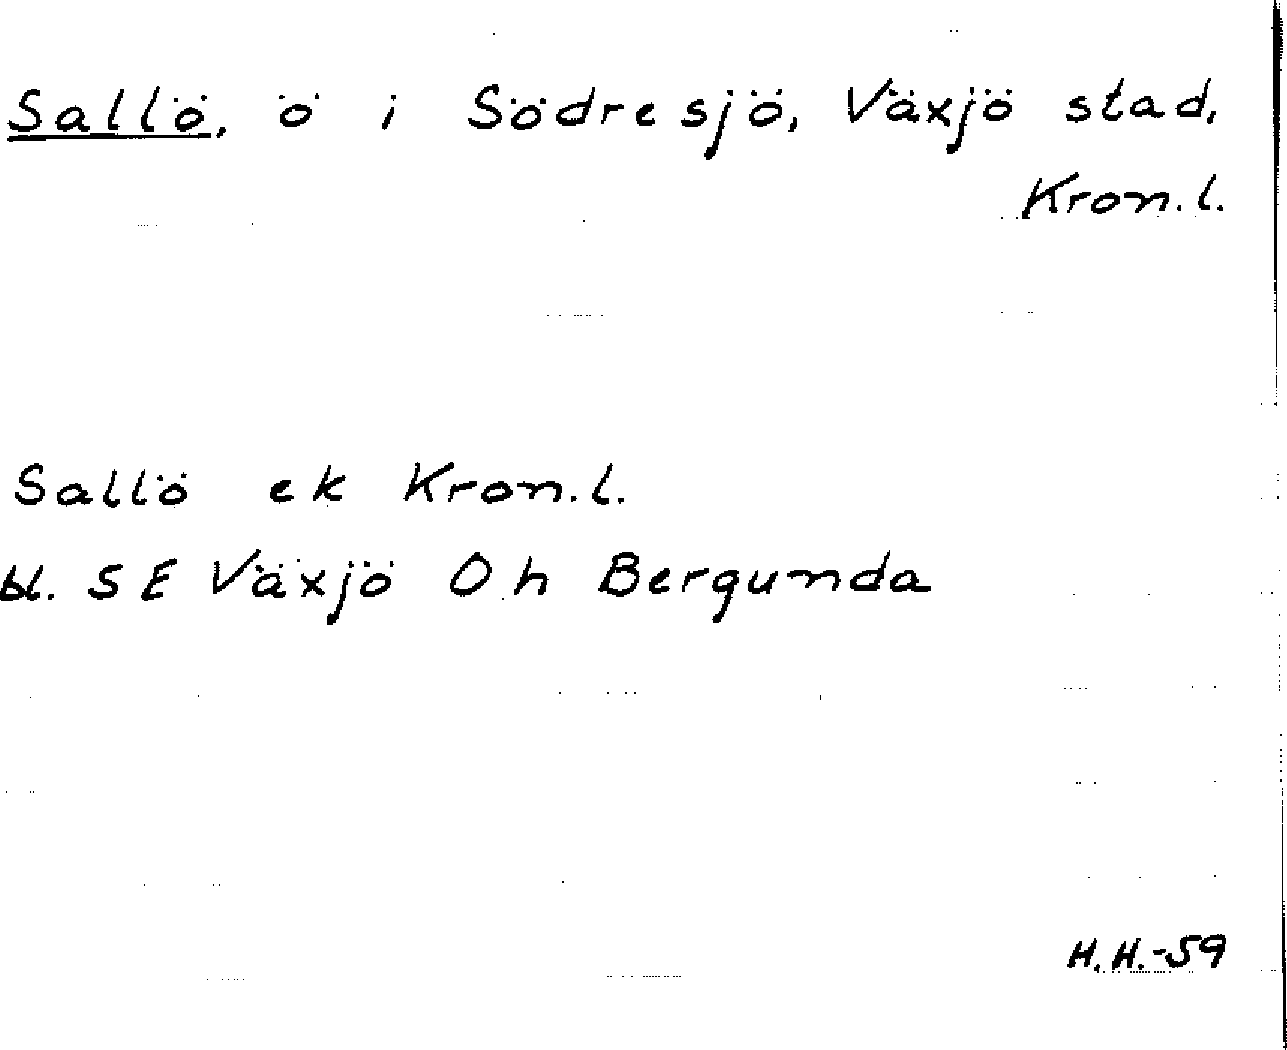 Sallö, ö i Södresjö, Växjö stad,
Kron.l.
Sallö ek Kron.l.
bl. SE Växjö Oh Bergunda
H.H.-59